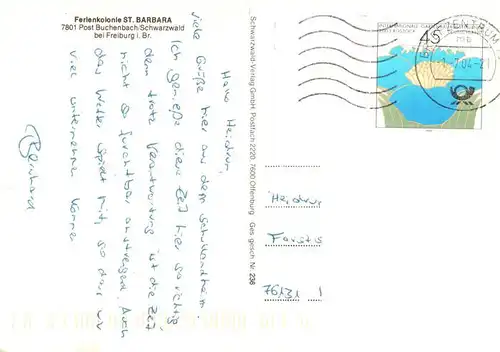 Ferienkolonie ST. BARBARA
7801 Post Buchenbach/Schwarzwald
bei Freiburg i. Br.
Hallo Heidrun,
viele Grüße hier aus dem Schwarzwald.
Ich genieße diese Zeit hier so richtig
dem trotz Verantwortung ist die Zeit
nicht so furchtbar anstrengend. Auch
das Wetter spielt mit, so daß wir
viel unternehmen können
Bernhard
Schwarzwald-Verlag GmbH, Postfach 2220, 7600 Offenburg Ges. gesch. Nr. 236
45
ZENTRUM
Heidrun
76131